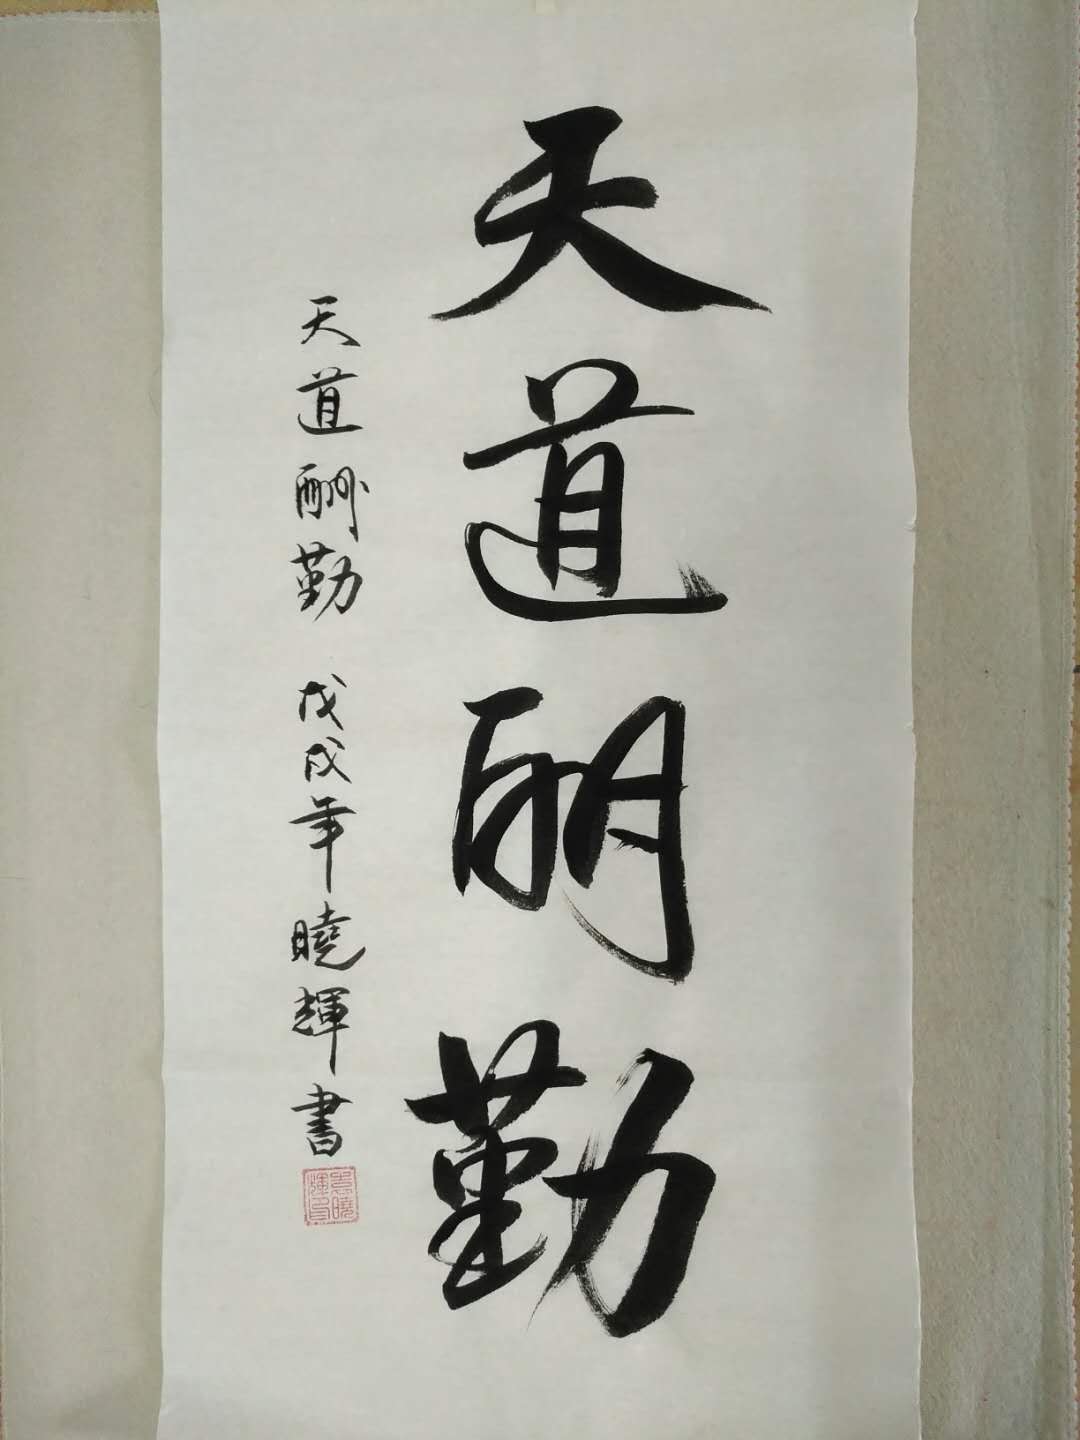 天道酬勤
天道酬勤 戊戌年曉輝書